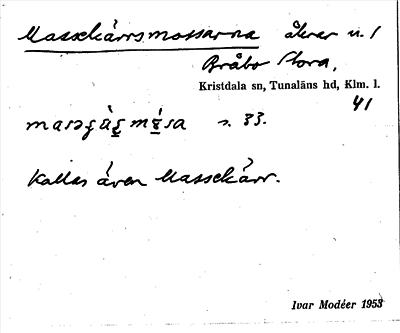 Massekärrsmossarna åkrar u. 1
Bråbo Stora,
Kristdala sn, Tunaläns hd, Klm. l.
41
s. 33.
Kallas även Massekärr.
Ivar Modéer 1953